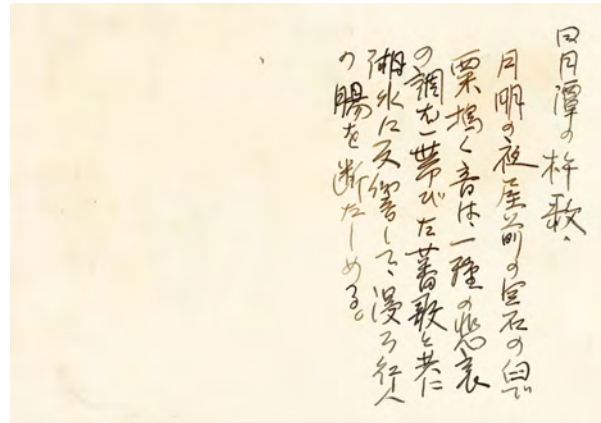 日月潭の杵歌、
月明の夜屋前の室石の臼で
粟搗く音は、一種の悲哀
の調を帯びた蕃歌と共に
湖水に反響して、漫ろ紅人
の腸を断たしめる。